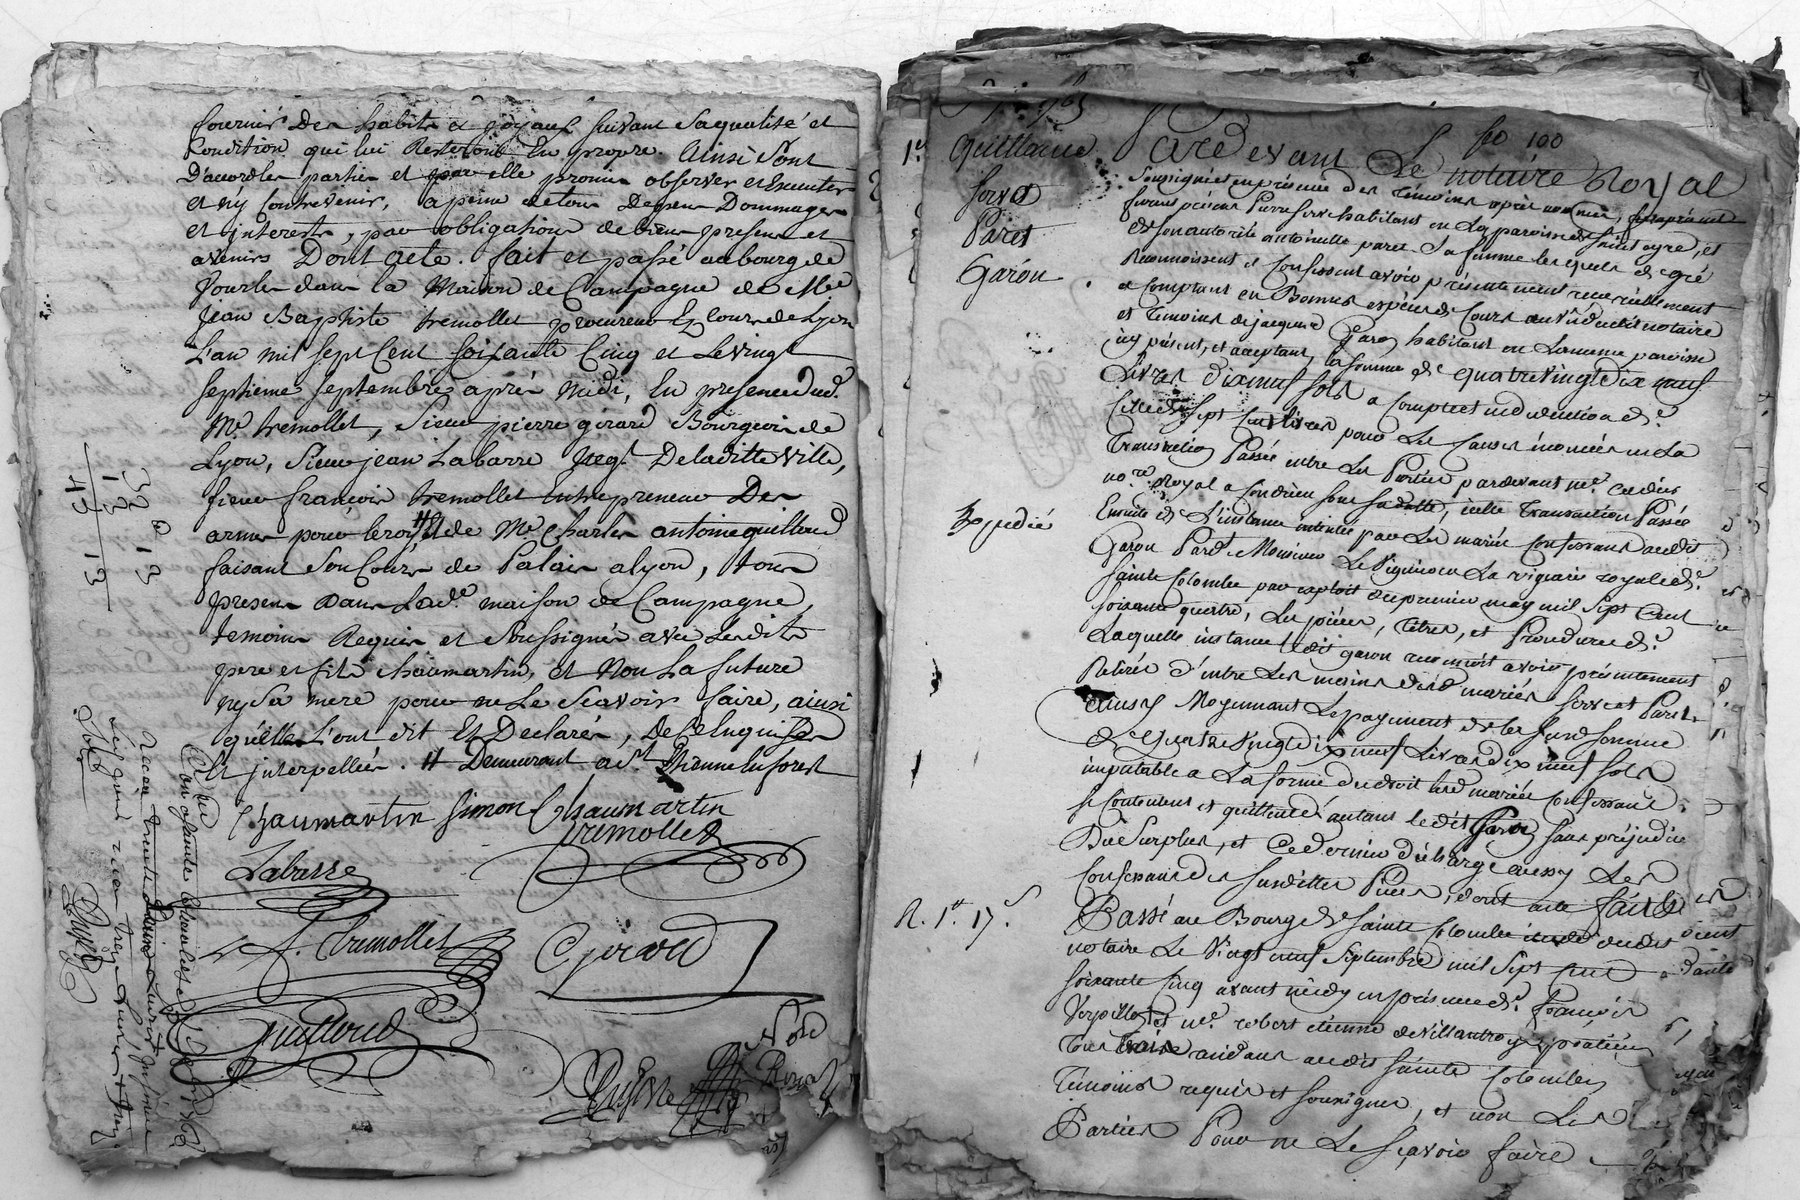 fournir des habits et joyaux suivant sa qualité et
Condition qui lui Resteront En propre. Ainsi Sont
D'accord les parties et par elle promis observer et Executer
et n'y Contrevenir, a peine de tous Depens Dommages
et interests, par obligations de biens presens et
avenirs Dont acte. fait et passé au bourg de
Jourles dans la Maison de Campagne de Me
Jean Baptiste tremollet procureur Ez Cours de Lyon
L'an mil sept Cent soixante Cinq et Le vingt
septieme septembre aprés midi, En presence dud.
Me. tremollet, Sieur pierre girard Bourgeois de
Lyon, Sieur jean Labarre Negt. De laditte ville,
sieur françois tremollet Entrepreneur Des
armes pour le roy # et de Me. Charles antoine guilloud
faisant Son Cours de Palais a lyon, tous
presens dans Lade. maison de Campagne,
temoins Requis et Soussignés avec Lesdits
pere et fils chaumartin, et Non La future
ny Sa mere pour ne Le Scavoir faire, ainsi
qu'elles L'ont dit Et Declaré, De Ce Enquises
Et interpellées. # Demeurant a St. Etienne en forest
Chaumartin Simon Chaumartin
tremollet
Labarre
f. tremollet
Girard
Guilloud
Note
Royal
32 13
13
45 13
fo 100
1er. Guittance
Serve
Paret
Garon
Expedié
R. 1tt 17s.
Pardevant Le notaire Royal
Soussigné et en présence des Témoins après nommés,
furent présens Pierre Serve habitant en La paroisse de Saint Cyre, et
de son autorité antoinette paret Sa femme lesquels de gré
Reconnoissent et Confessent avoir présentement reçu réellement
et Comptant en Bonnes espèces de Cours au vû dudit notaire
et Témoins de jacques Garon habitant en La meme paroisse
icy présent, et acceptant, la somme de quatre vingt dix neuf
Livres dix neuf sols a Compte et en deduction de
Celle de Sept Cent livres pour Les Causes énoncées en La
Transaction Passée entre Les Parties pardevant me.
nore. Royal a Condrieu sous sa datte, icelle Transaction Passée
Ensuite de L'instance intentée par Les mariés Confessans audit
Garon Pardt. Monsieur Le Viguier en La viguerie royale de
Sainte Colombe par exploit du premier may mil Sept Cent
soixante quatre, Les pièces, titres, et Procedures de
Laquelle instance Ledit garon reconnoit avoir présentement
Retirés d'entre Les mains desd. mariés Serve et Paret,
Ainsy Moyennant Le payement de la susd. somme
de quatre vingt dix neuf Livres dix neuf sols
imputable a La forme du droit Lesd. mariés Confessans
se Contentent et quittent d'autant ledit Garon sans préjudice
Du Surplus, et Ce dernier décharge aussy Les
Confessans des susdittes Pièces, dont acte fait et
Passé au Bourg de Sainte Colombe étude dudit
notaire Le Vingt neuf Septembre mil Sept Cent
soixante Cinq avant midy en présence de François
et me. robert etienne de villantroy, praticien
Tous Résidans audit Sainte Colombe
Témoins requis et soussignés, et non Les
Parties Pour ne Le Sçavoir faire